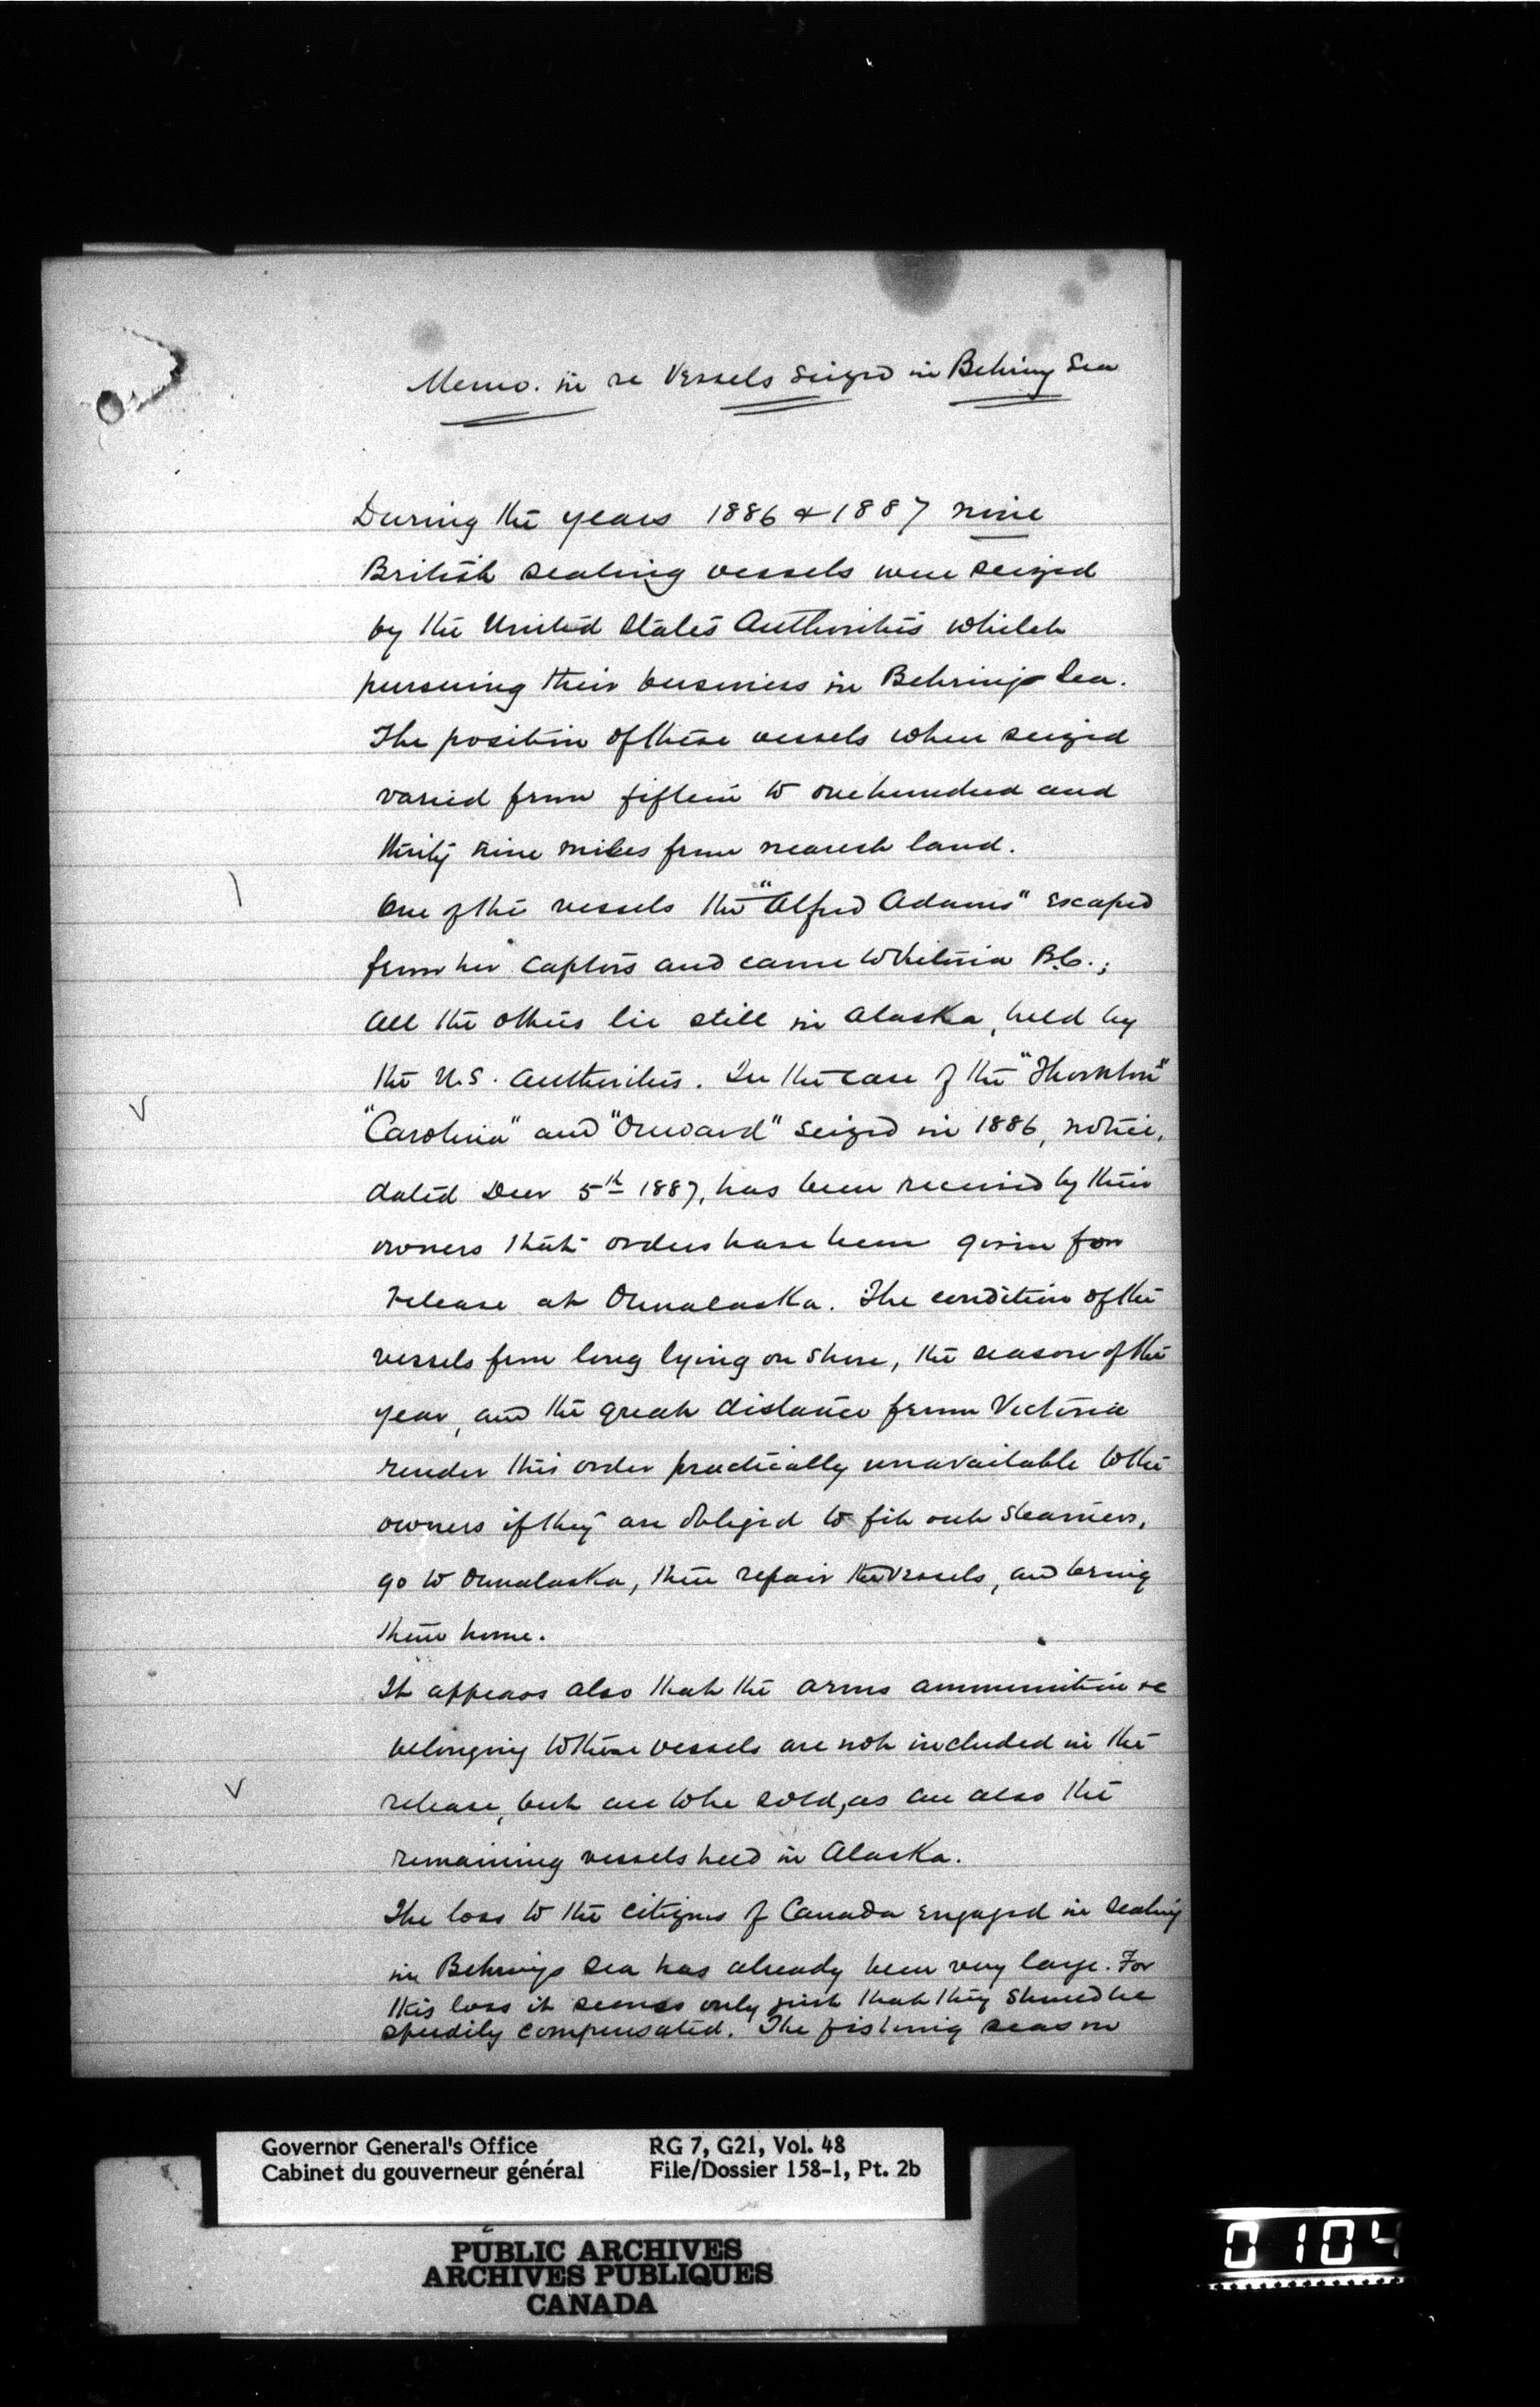 Memo. in re Vessels seized in Behring Sea
During the years 1886 & 1887 nine
British sealing vessels were seized
by the United States Authorities whilst
pursuing their business in Behring Sea.
The position of these vessels when seized
varied from fifteen to one hundred and
thirty nine miles from nearest land.
One of the vessels the "Alfred Adams" escaped
from her captors and came to Victoria B.C.;
all the others lie still in Alaska, held by
the U.S. authorities. In the case of the "Thornton"
"Carolina" and "Onward" seized in 1886, notice,
dated Decr 5th 1887, has been received by their
owners that orders have been given for
release at Ounalaska. The condition of the
vessels from long lying on shore, the season of the
year, and the great distance from Victoria
render this order practically unavailable to the
owners if they are obliged to fit out steamers,
go to Ounalaska, there repair the vessels, and bring
them home.
It appears also that the arms ammunition &c
belonging to these vessels are not included in the
release, but are to be sold, as are also the
remaining vessels held in Alaska.
The loss to the citizens of Canada engaged in sealing
in Behrings Sea has already been very large. For
this loss it seems only just that they should be
speedily compensated. The fishing season
Governor General's Office RG 7, G21, Vol. 48
Cabinet du gouverneur général File/Dossier 158-1, Pt. 2b
PUBLIC ARCHIVES
ARCHIVES PUBLIQUES
CANADA
0104